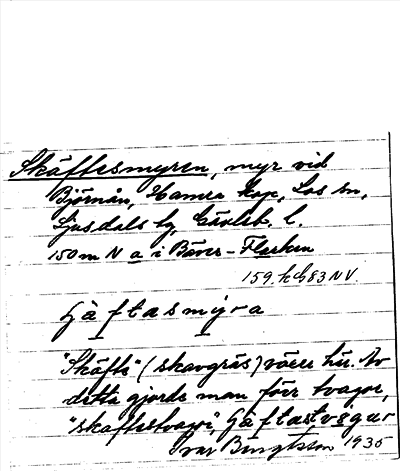 Skäftesmyren, myr vid
Björnån, Hamra kap, Los sn,
Ljusdals tg, Gävleb. l.
150 m N a i Bäver-Flarken
159. h G 83 NV.
gäftasmyra
"Skäfte" (skavgräs) växer här. Av
detta gjorde man förr tvagor,
"skäftestvagor", gäftastvegur
Ivar Bengtsson 1935